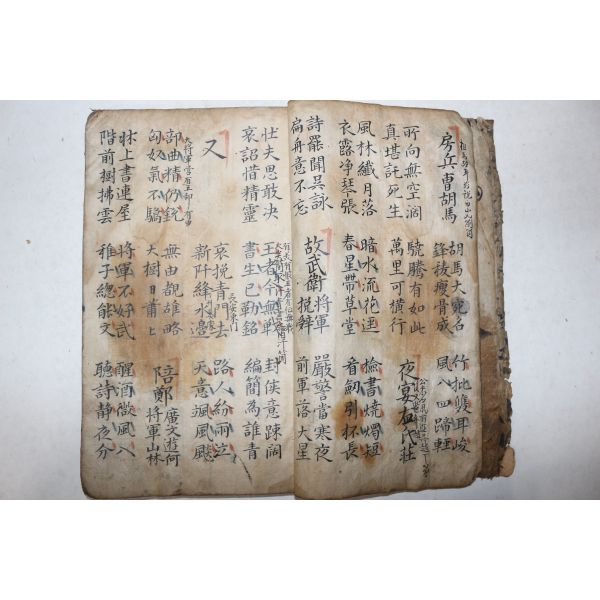 房兵曹胡馬
胡馬大宛名
鋒稜瘦骨成
竹批雙耳峻
風入四蹄輕
所向無空濶
真堪託死生
驍騰有如此
萬里可橫行
夜宴左氏莊
風林纖月落
衣露净琴張
暗水流花逕
春星帶草堂
檢書燒燭短
看劒引杯長
詩罷聞吳詠
扁舟意不忘
故武衛將軍
挽辭
嚴警當寒夜
前軍落大星
壯夫思敢决
哀詔惜精靈
王者今無戰
書生已勒銘
封侯意踈闊
編簡為誰青
又
哀挽青門去
新阡絳水邊
路人紛雨泣
天意颯風飈
部曲精仍銳
匈奴氣不驕
無由覩雄略
大樹日蕭蕭
陪鄭廣文遊何
將軍山林
床上書連屋
階前樹拂雲
將軍不好武
稚子總能文
醒酒微風入
聽詩靜夜分